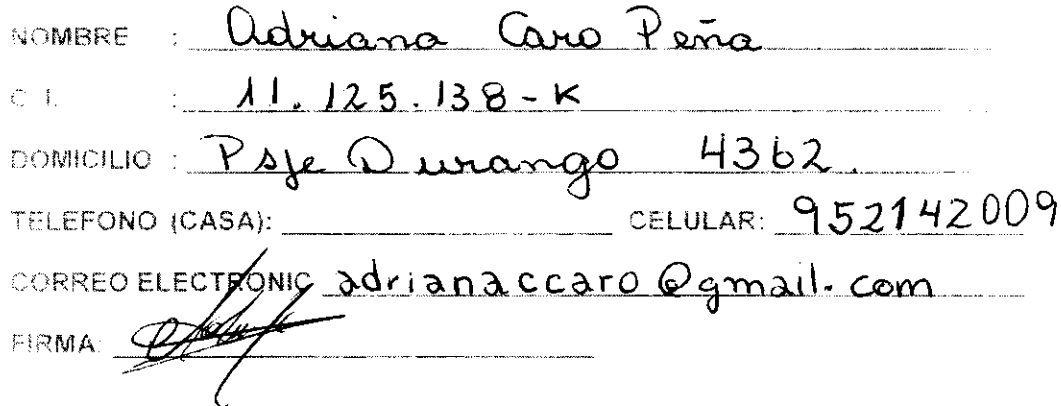 NOMBRE : Adriana Caro Peña
C. I. : 11.125.138-K
DOMICILIO : Psje Durango 4362.
TELEFONO (CASA): CELULAR: 952142009
CORREO ELECTRÓNIC adrianaccaro@gmail.com
FIRMA: